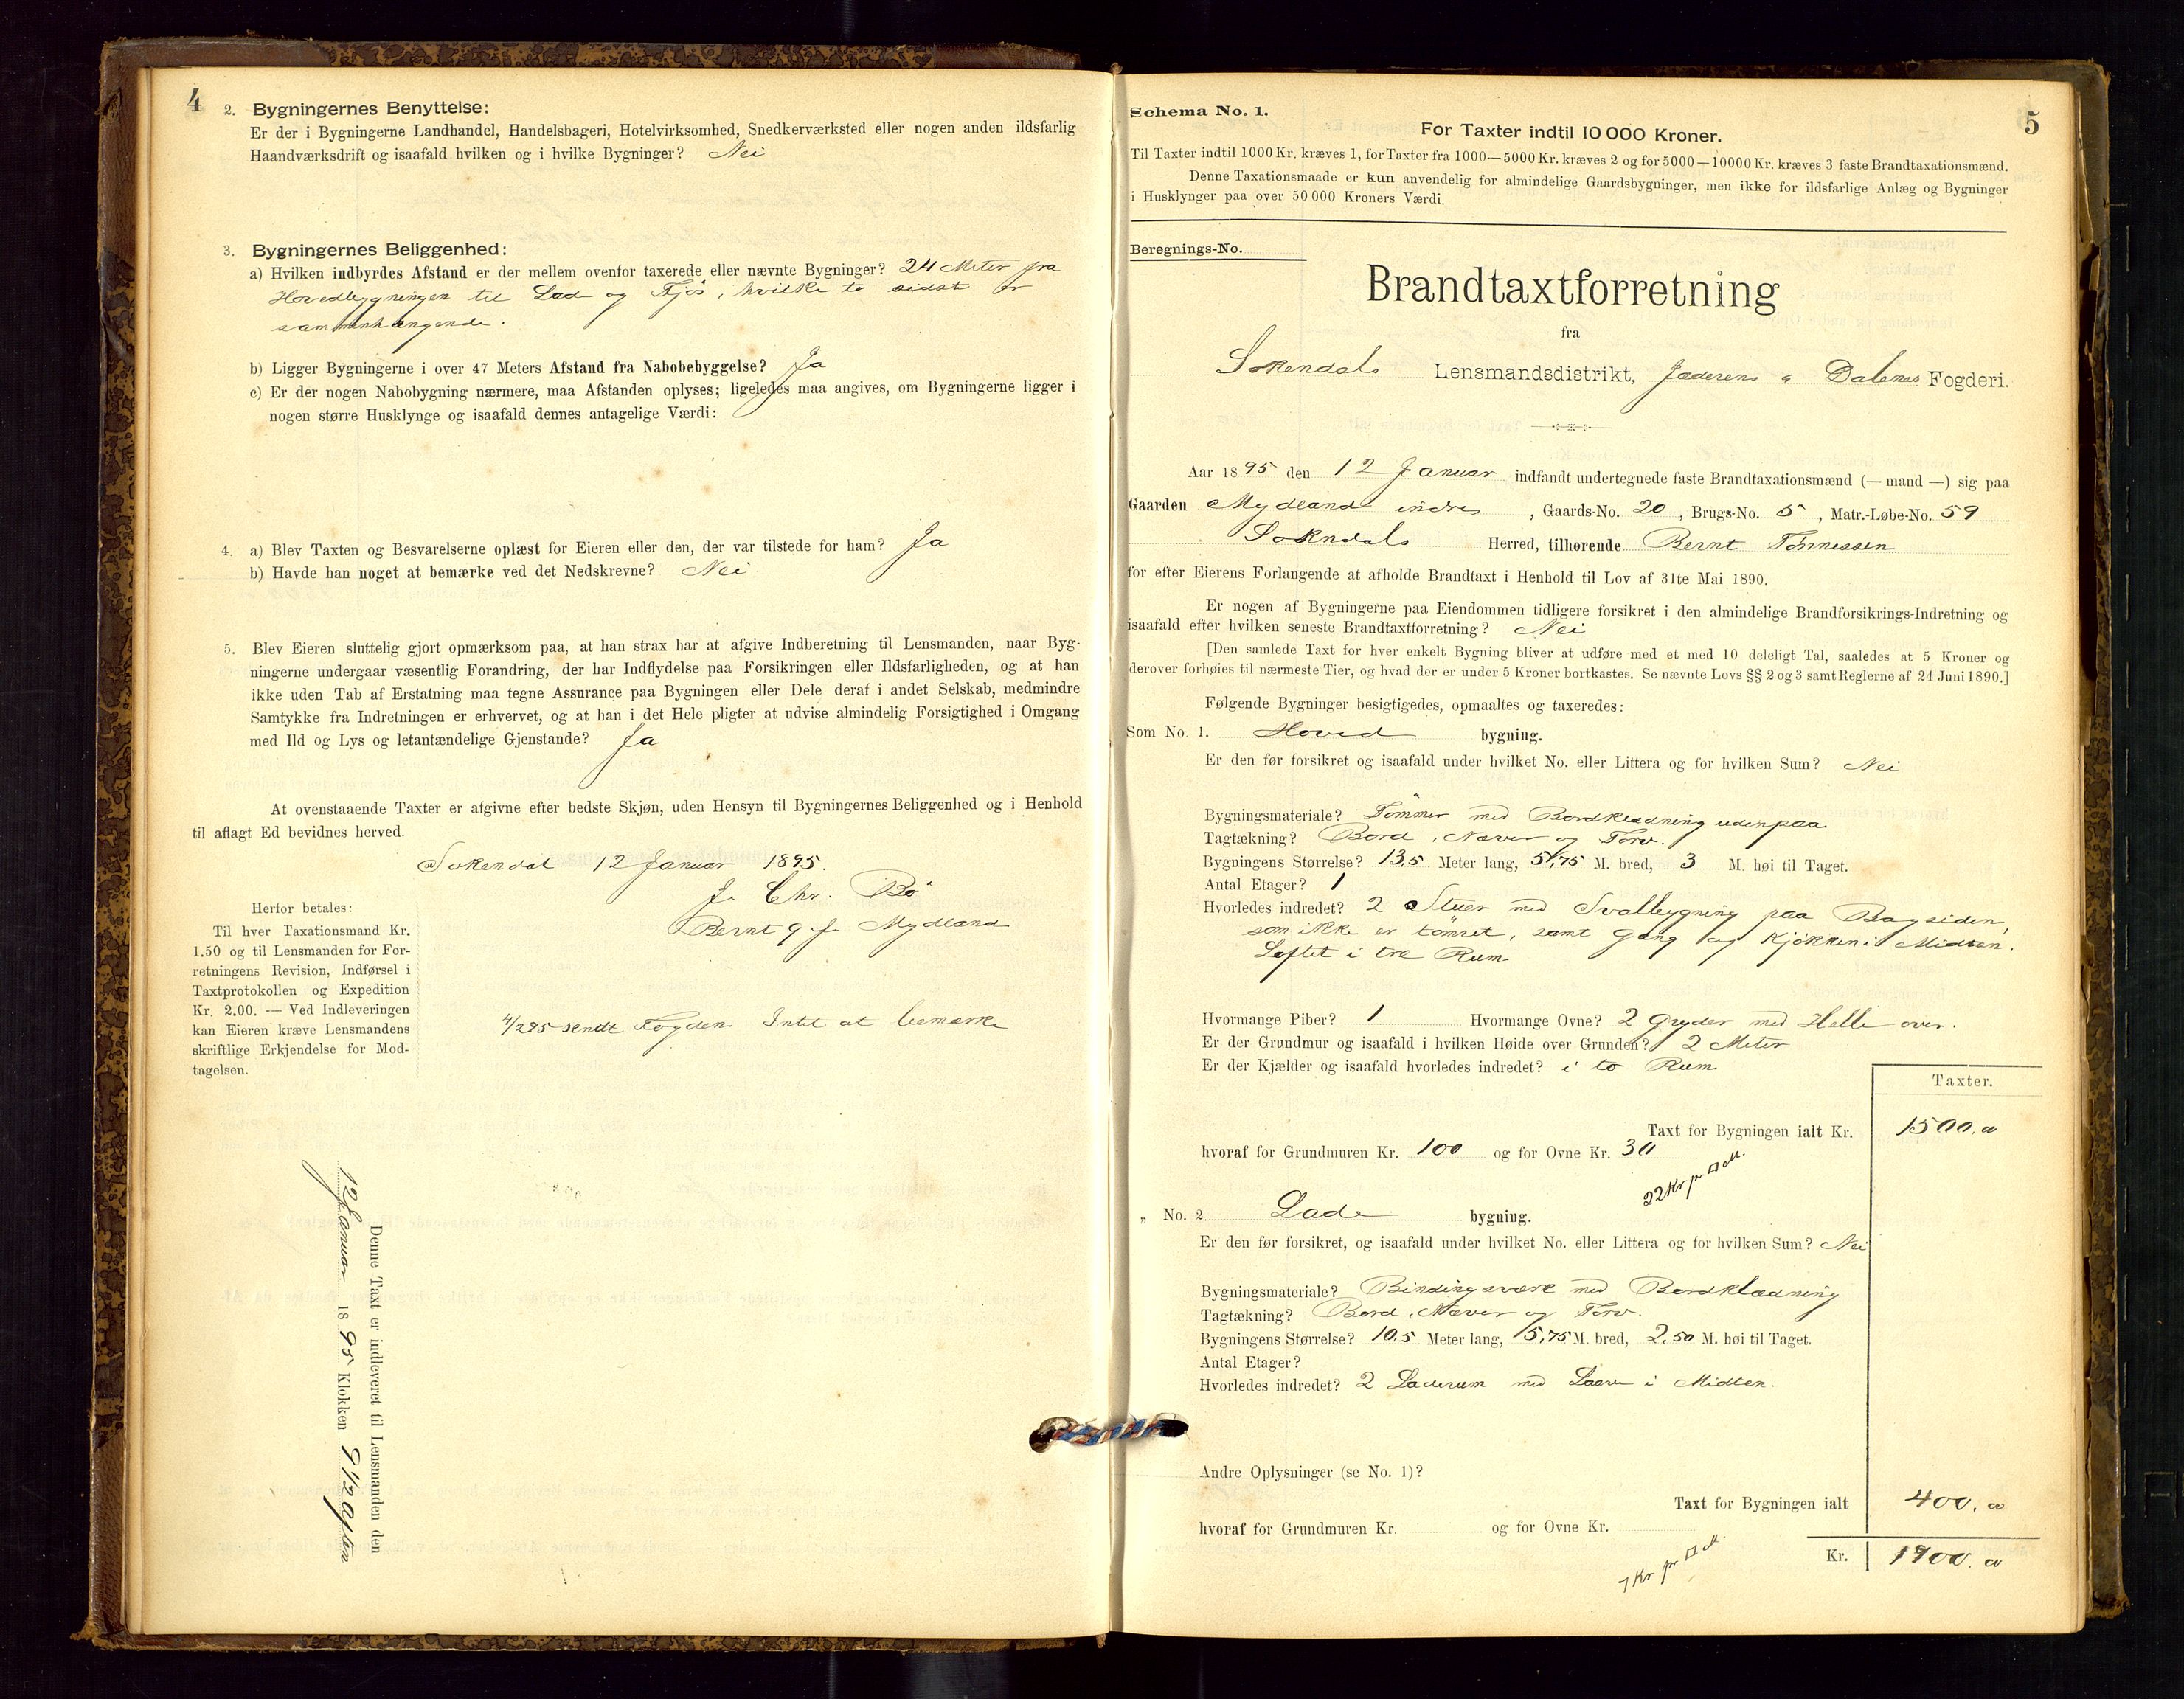 4
2. Bygningernes Benyttelse:
Er der i Bygningerne Landhandel, Handelsbageri, Hotelvirksomhed, Snedkerværksted eller nogen anden ildsfarlig
Haandværksdrift og isaafald hvilken og i hvilke Bygninger? Nei
3. Bygningernes Beliggenhed:
a) Hvilken indbyrdes Afstand er der mellem ovenfor taxerede eller nævnte Bygninger? 24 Meter fra
Hovedbygningen til Lade og Fjøs, hvilke to sidst er
sammenhængende.
b) Ligger Bygningerne i over 47 Meters Afstand fra Nabobebyggelse? Ja
c) Er der nogen Nabobygning nærmere, maa Afstanden oplyses; ligeledes maa angives, om Bygningerne ligger i
nogen større Husklynge og isaafald dennes antagelige Værdi:
4. a) Blev Taxten og Besvarelserne oplæst for Eieren eller den, der var tilstede for ham? Ja
b) Havde han noget at bemærke ved det Nedskrevne? Nei
5. Blev Eieren sluttelig gjort opmærksom paa, at han strax har at afgive Indberetning til Lensmanden, naar Byg-
ningerne undergaar væsentlig Forandring, der har Indflydelse paa Forsikringen eller Ildsfarligheden, og at han
ikke uden Tab af Erstatning maa tegne Assurance paa Bygningen eller Dele deraf i andet Selskab, medmindre
Samtykke fra Indretningen er erhvervet, og at han i det Hele pligter at udvise almindelig Forsigtighed i Omgang
med Ild og Lys og letantændelige Gjenstande? Ja
At ovenstaaende Taxter er afgivne efter bedste Skjøn, uden Hensyn til Bygningernes Beliggenhed og i Henhold
til aflagt Ed bevidnes herved.
Sokendal 12 Januar 1895.
J. Chr. Bö
Bernt Mydland
Herfor betales:
Til hver Taxationsmand Kr.
1.50 og til Lensmanden for For-
retningens Revision, Indførsel i
Taxtprotokollen og Expedition
Kr. 2.00. — Ved Indleveringen
kan Eieren kræve Lensmandens
skriftlige Erkjendelse for Mod-
tagelsen.
4/2 95 sendt Fogden Intet at bemærke
Denne Taxt er indleveret til Lensmanden den
12 Januar 1895 Klokken 9 1/2 Aften
5
Schema No. 1.
For Taxter indtil 10 000 Kroner.
Til Taxter indtil 1000 Kr. kræves 1, for Taxter fra 1000—5000 Kr. kræves 2 og for 5000—10000 Kr. kræves 3 faste Brandtaxationsmænd.
Denne Taxationsmaade er kun anvendelig for almindelige Gaardsbygninger, men ikke for ildsfarlige Anlæg og Bygninger
i Husklynger paa over 50 000 Kroners Værdi.
Beregnings-No.
Brandtaxtforretning
fra
Sokendals Lensmandsdistrikt, Jæderens & Dalenes Fogderi.
Aar 1895 den 12 Januar indfandt undertegnede faste Brandtaxationsmænd (— mand —) sig paa
Gaarden Mydland indre, Gaards-No. 20, Brugs-No. 5, Matr.-Løbe-No. 59
Sokndals Herred, tilhørende Bernt Tönnessen
for efter Eierens Forlangende at afholde Brandtaxt i Henhold til Lov af 31te Mai 1890.
Er nogen af Bygningerne paa Eiendommen tidligere forsikret i den almindelige Brandforsikrings-Indretning og
isaafald efter hvilken seneste Brandtaxtforretning? Nei
[Den samlede Taxt for hver enkelt Bygning bliver at udføre med et med 10 deleligt Tal, saaledes at 5 Kroner og
derover forhøies til nærmeste Tier, og hvad der er under 5 Kroner bortkastes. Se nævnte Lovs §§ 2 og 3 samt Reglerne af 24 Juni 1890.]
Følgende Bygninger besigtigedes, opmaaltes og taxeredes:
Som No. 1. Hoved bygning.
Er den før forsikret og isaafald under hvilket No. eller Littera og for hvilken Sum? Nei
Bygningsmateriale? Tömmer med Bordklædning udenpaa
Tagtækning? Bord, Næver og Torv.
Bygningens Størrelse? 13,5 Meter lang, 5,75 M. bred, 3 M. høi til Taget.
Antal Etager? 1
Hvorledes indredet? 2 Stuer med Svalbygning paa Bagsiden,
som ikke er tömret, samt Gang og Kjökken i Midten.
Loftet i tre Rum
Hvormange Piber? 1 Hvormange Ovne? 2 Gryder med Helle over.
Er der Grundmur og isaafald i hvilken Høide over Grunden? 2 Meter
Er der Kjælder og isaafald hvorledes indredet? i to Rum
Taxter.
Taxt for Bygningen ialt Kr. 1500.
hvoraf for Grundmuren Kr. 100 og for Ovne Kr. 30
22 Kr pr □ M.
„ No. 2. Lade bygning.
Er den før forsikret, og isaafald under hvilket No. eller Littera og for hvilken Sum? Nei
Bygningsmateriale? Bindingsværk med Bordklædning
Tagtækning? Bord, Næver og Torv.
Bygningens Størrelse? 10.5 Meter lang, 5,75 M. bred, 2.50 M. høi til Taget.
Antal Etager?
Hvorledes indredet? 2 Laderum med Laave i Midten.
Andre Oplysninger (se No. 1)?
Taxt for Bygningen ialt 400.
hvoraf for Grundmuren Kr. og for Ovne Kr.
7 Kr pr □ M.
Kr. 1900.